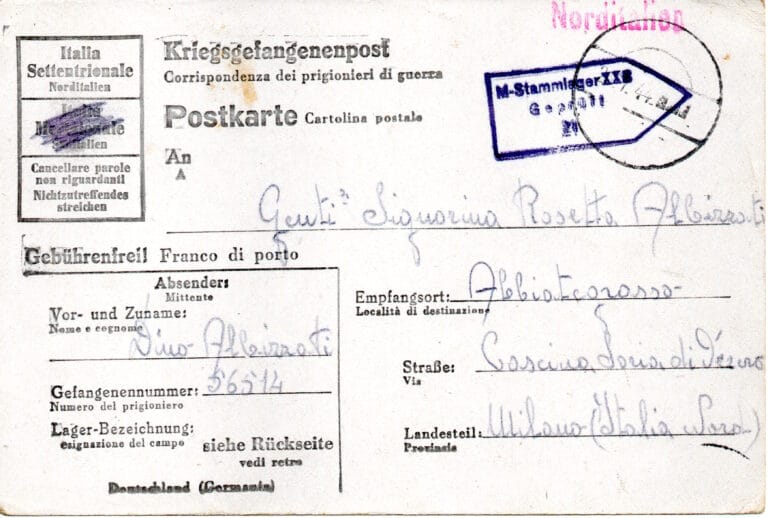 Norditalien
Italia
Settentrionale
Norditalien
Cancellare parole
non riguardanti
Nichtzutreffendes
streichen
Kriegsgefangenenpost
Corrispondenza dei prigionieri di guerra
Postkarte Cartolina postale
M-Stammlager XXB
Geprüft
21
44
An
A
Gentiª Signorina Rosetta Albizzati
Gebührenfrei! Franco di porto
Absender:
Mittente
Vor- und Zuname:
Nome e cognome
Dino Albizzati
Gefangenennummer: 56514
Numero del prigioniero
Lager-Bezeichnung:
esignazione del campo
siehe Rückseite
vedi retro
Deutschland (Germania)
Empfangsort: Abbiategrasso
Località di destinazione
Straße: Cascina Soria di
Via
Landesteil: Milano (Italia Nord)
Provincia